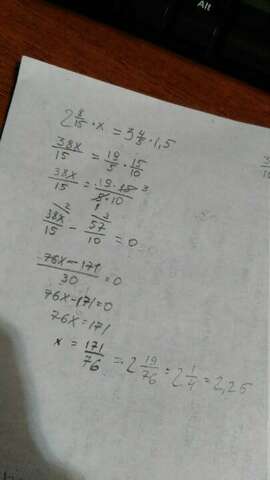 Alt
2 8/15 · x = 3 4/5 · 1,5
38x/15 = 19/5 · 15/10
38x/15 = 19·15 3/5·10 1
38x/15 2 - 57/10 3 = 0
76x - 171/30 = 0
76x - 171 = 0
76x = 171
x = 171/76 = 2 19/76 = 2 1/4 = 2,25